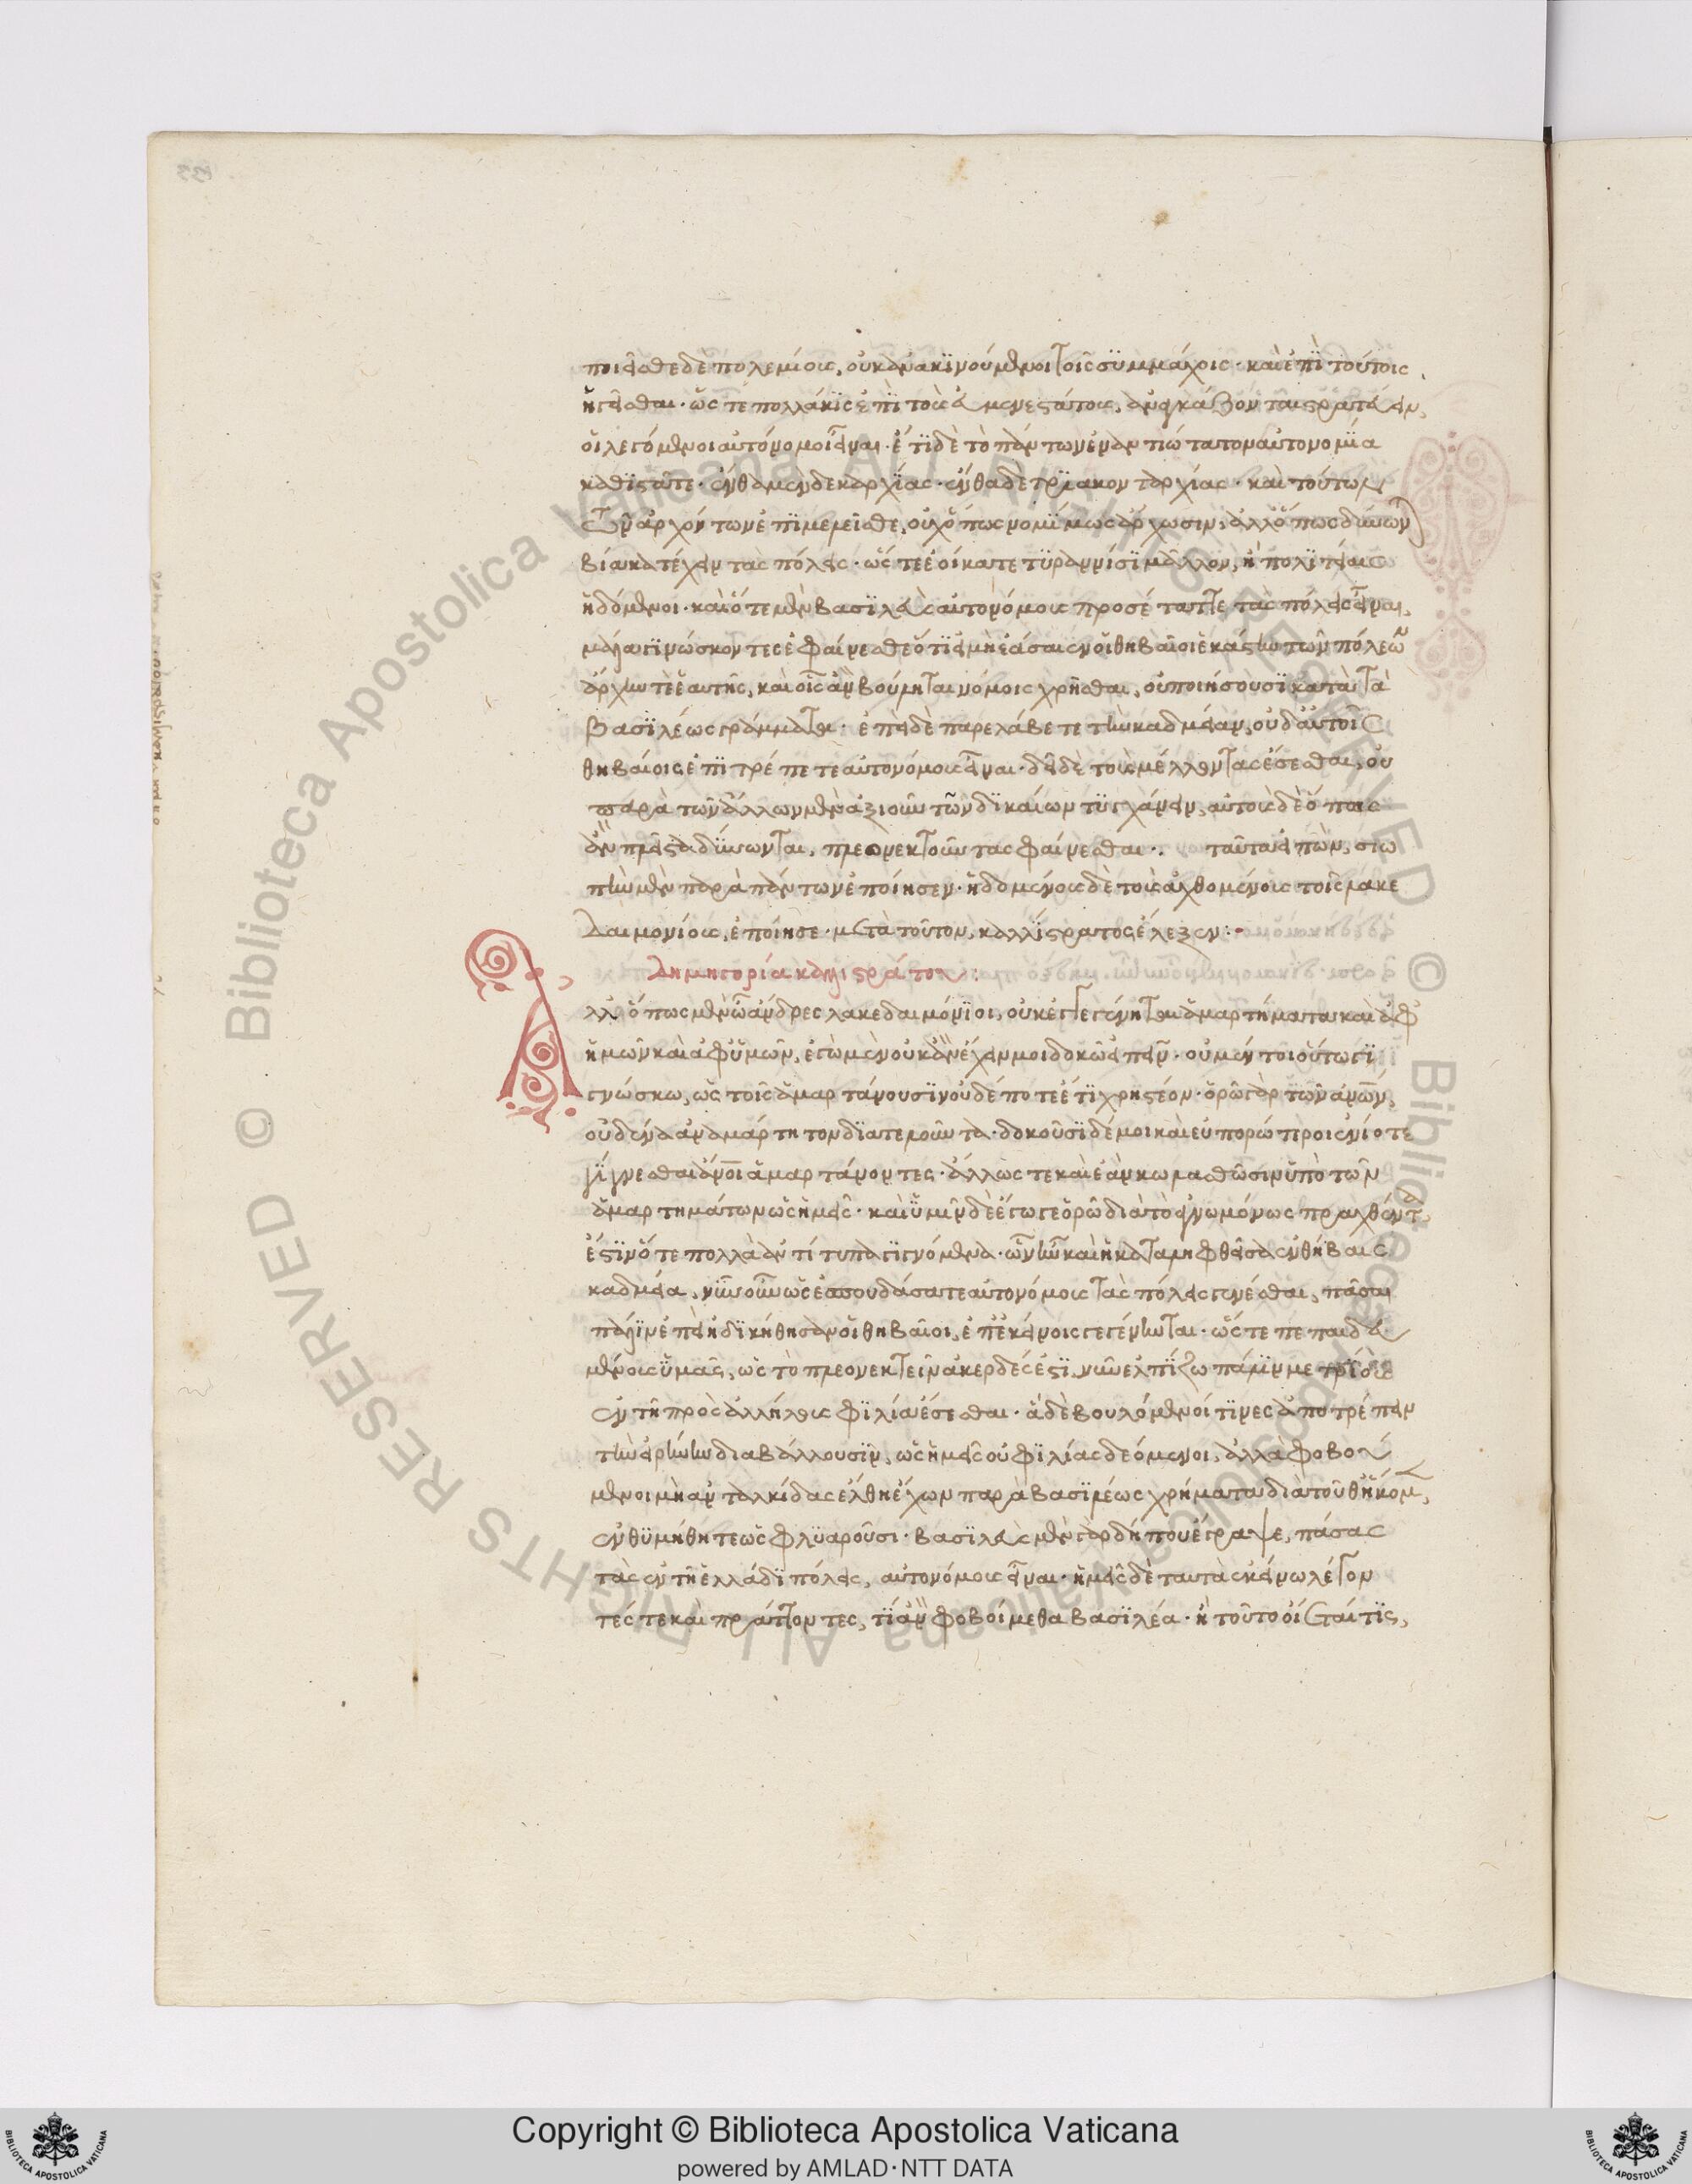 ποιεῖσθε δὲ πολεμίους, οὐκ ἀνακινούμενοι τοῖς συμμάχοις· καὶ ἐπὶ τούτοις
ἡγεῖσθαι· ὥστε πολλάκις ἐπὶ τοὺς εὐμενεστάτους, ἀναγκάζονται στρατεύειν,
οἱ λεγόμενοι αὐτόνομοι εἶναι· ἔτι δὲ τὸ πάντων ἐναντιώτατον αὐτονομία
καθίστατε· ἔνθα μὲν δεκαρχίας· ἔνθα δὲ τριακονταρχίας· καὶ τούτων
τῶν ἀρχόντων ἐπιμελεῖσθε, οὐχ ὅπως νομίμως ἄρχωσιν, ἀλλ' ὅπως δύνωνται
βίᾳ κατέχειν τὰς πόλεις· ὥστε ἐοίκατε τυραννίσι μᾶλλον, ἢ πολιτείαις
ἡδόμενοι· καὶ ὅτε μὲν βασιλεὺς αὐτονόμους προσέταττε τὰς πόλεις εἶναι,
μάλα γινώσκοντες ἐφαίνεσθε ὅτι εἰ μὴ ἐάσαιεν οἱ θηβαῖοι ἑκάστην τῶν πόλεων
ἄρχειν τὲ ἑαυτῆς, καὶ οἷς ἂν βούληται νόμοις χρῆσθαι, οὐ ποιήσουσι κατὰ τὰ
βασιλέως γράμματα· ἐπεὶ δὲ παρελάβετε τὴν καδμείαν, οὐδ' αὐτοῖς
θηβαίοις ἐπιτρέπετε αὐτονόμους εἶναι· δεῖ δὲ τοὺς μέλλοντας ἔσεσθαι, οὐ
παρὰ τῶν ἄλλων μὲν ἀξιοῦν τῶν δικαίων τυγχάνειν, αὐτοὺς δὲ ὅπως
ἂν πλεῖστα δύνωνται, πλεονεκτοῦντας φαίνεσθαι·. ταῦτα εἰπὼν, σιω
πὴν μὲν παρὰ πάντων ἐποίησεν· ἡδομένους δὲ τοὺς ἀχθομένους τοῖς λακε
δαιμονίοις, ἐποίησε· μετὰ τοῦτον, καλλίστρατος ἔλεξεν:
δημηγορία καλλιστράτου:
Ἀλλ' ὅπως μὲν ὦ ἄνδρες λακεδαιμόνιοι, οὐκ ἐγγεγένηται ἁμαρτήματα καὶ ἀφ'
ἡμῶν καὶ ἀφ' ὑμῶν, ἐγὼ μὲν οὐκ ἂν ἔχειν μοι δοκῶ εἰπεῖν· οὐ μέντοι οὕτω γι
γνώσκω, ὡς τοῖς ἁμαρτάνουσιν οὐδέποτε ἔτι χρηστέον· ὁρῶ γὰρ τῶν ἀνθρώπων,
οὐδένα ἀναμάρτητον διατελοῦντα· δοκοῦσι δέ μοι καὶ εὐπορώτεροι ἐνίοτε
γίγνεσθαι ἄνθρωποι ἁμαρτάνοντες· ἄλλως τε καὶ ἐὰν κολασθῶσιν ὑπὸ τῶν
ἁμαρτημάτων ὡς ἡμεῖς· καὶ ὑμῖν δὲ ἔγωγε ὁρῶ διὰ τὸ ἀγνωμόνως πραχθέντα,
ἔστιν ὅτε πολλὰ ἀντίτυπα γιγνόμενα· ὧν ἦν καὶ ἡ καταληφθεῖσα ἐν θήβαις
καδμεία, νῦν οὖν ὡς ἐσπουδάσατε αὐτονόμους τὰς πόλεις γενέσθαι, πᾶσαι
πάλιν ἐπεὶ ἠδικήθησαν οἱ θηβαῖοι, ἐπ' ἐκείνοις γεγένηνται· ὥστε πεπαιδευ
μένους ὑμᾶς, ὡς τὸ πλεονεκτεῖν ἀκερδές ἐστι, νῦν ἐλπίζω πάλιν μετρίους
ἐν τῇ πρὸς ἀλλήλους φιλίᾳ ἔσεσθαι· ἃ δὲ βουλόμενοί τινες ἀποτρέπειν
τὴν εἰρήνην διαβάλλουσιν, ὡς ἡμεῖς οὐ φιλίας δεόμενοι, ἀλλὰ φοβού
μενοι μὴ ἀνταλκίδας ἔλθῃ ἔχων παρὰ βασιλέως χρήματα διὰ τοῦθ' ἥκομεν,
ἐνθυμήθητε ὡς φλυαροῦσι· βασιλεὺς μὲν γὰρ δήπου ἔγραψε, πάσας
τὰς ἐν τῇ ἑλλάδι πόλεις, αὐτονόμους εἶναι· ἡμεῖς δὲ ταυτὰ ἐκείνῳ λέγον
τές τε καὶ πράττοντες, τί ἂν φοβοίμεθα βασιλέα· ἢ τοῦτο οἴεταί τις,
Copyright © Biblioteca Apostolica Vaticana
powered by AMLAD·NTT DATA